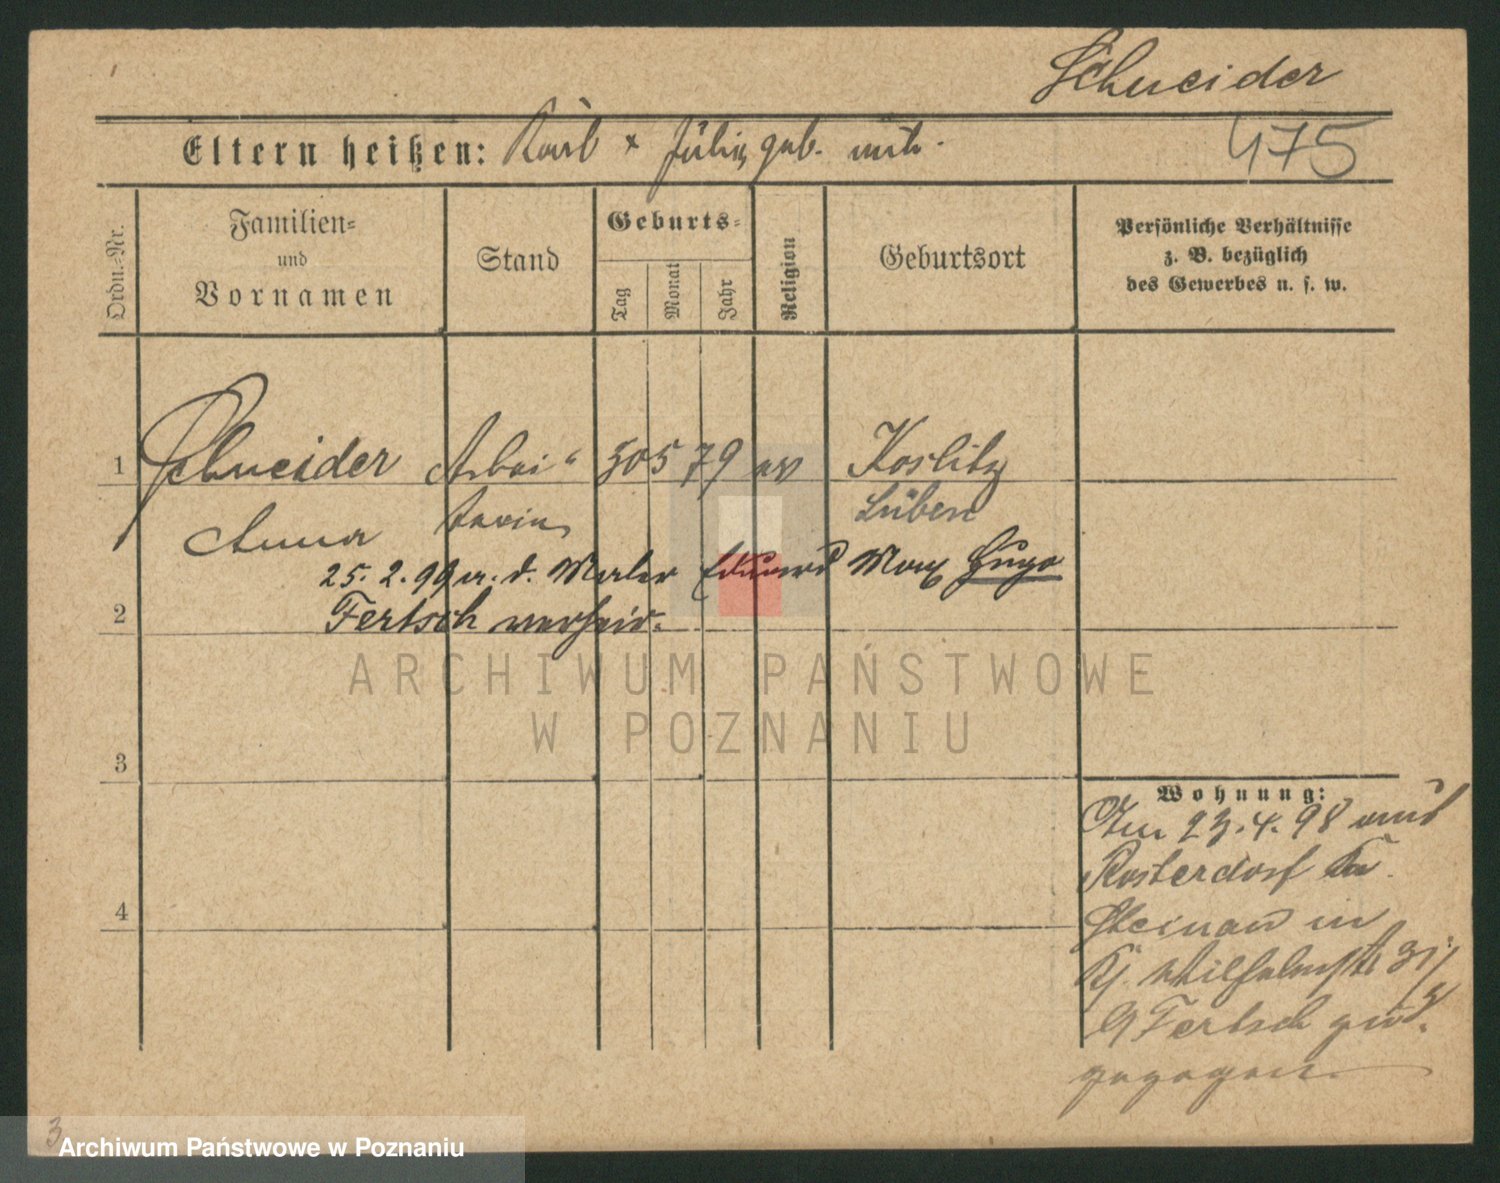 Schneider
Eltern heißen: Karl + Julie, geb. unb.
475
Ordn.-Nr.
Familien-
und
Vornamen
Stand
Geburts-
Tag
Monat
Jahr
Religion
Geburtsort
Persönliche Verhältnisse
z. B. bezüglich
des Gewerbes u. s. w.
1 Schneider Arbei- 30 5 79 ev Koslitz
Anna terin Lüben
25. 2. 99 m. d. Maler Eduard Max Hugo
2 Fertsch verheir.
ARCHIWUM PAŃSTWOWE
W POZNANIU
3
Wohnung:
Am 23. 4. 98 aus
Rosterdorf Kr.
4
Steinau in
Wilhelmstr 31/
Fertsch
zugezogen.
3
Archiwum Państwowe w Poznaniu